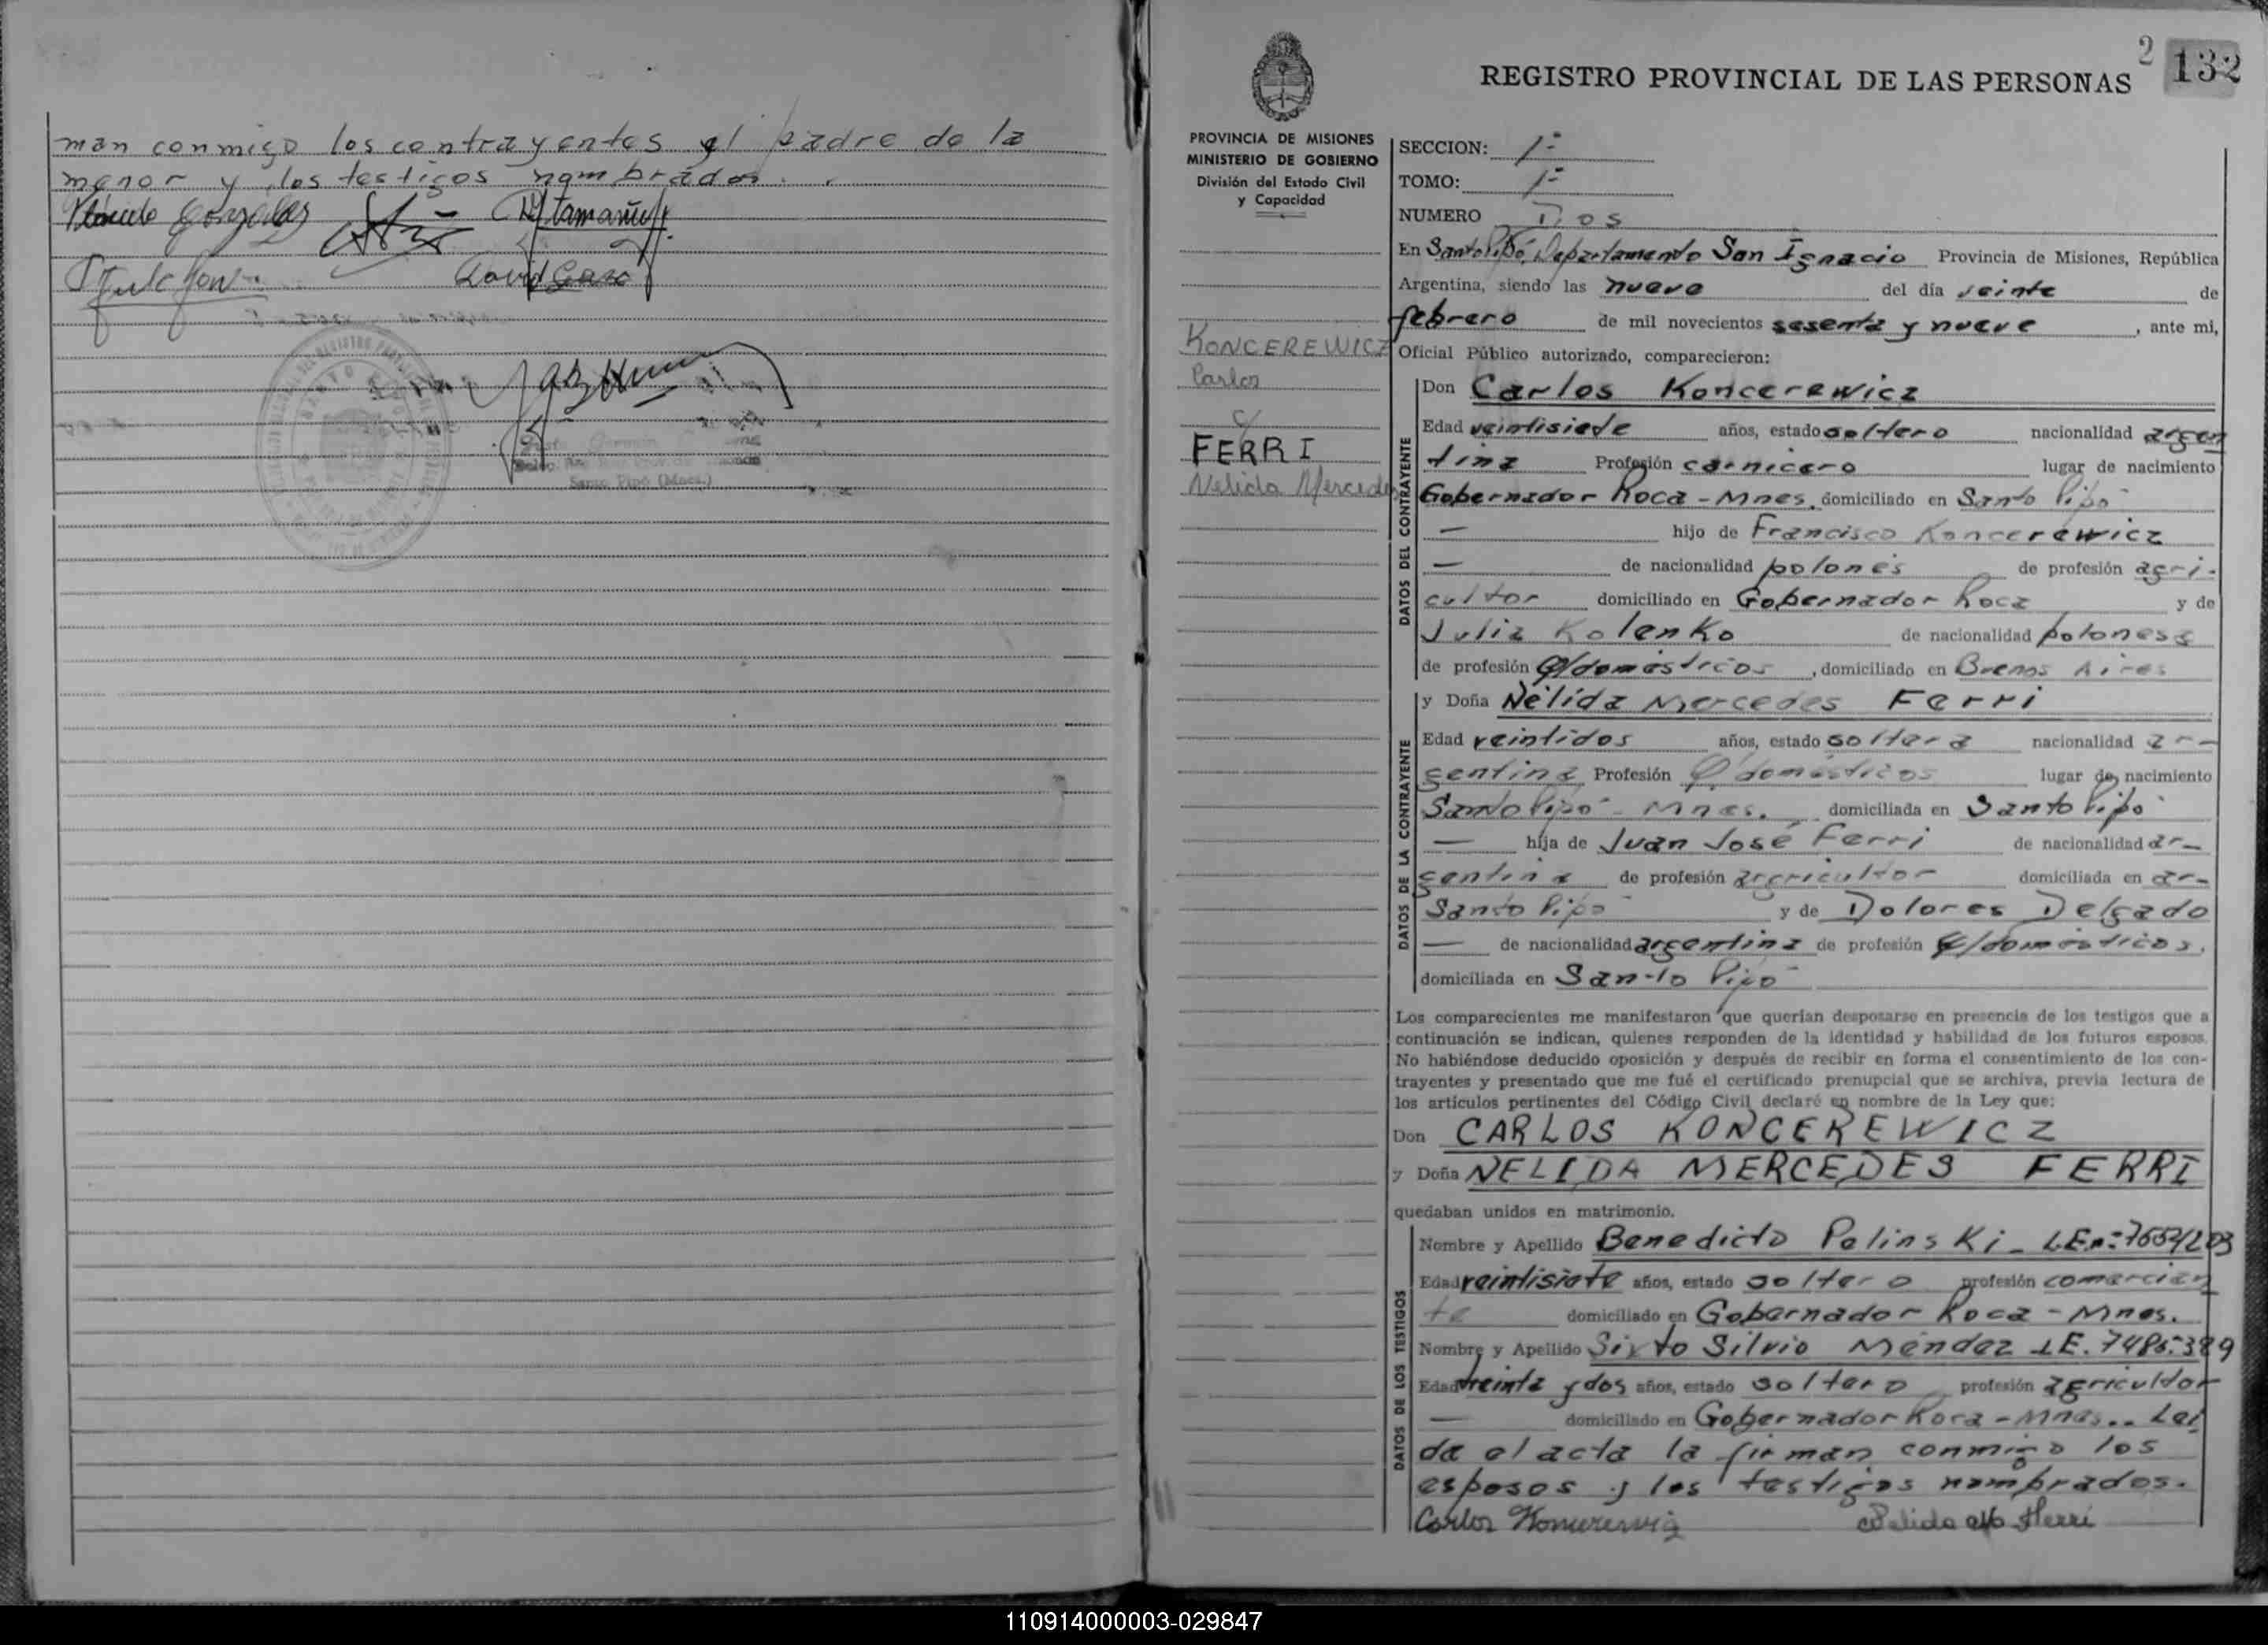 man conmigo los contrayentes el padre de la
menor y los testigos nombrados.
David
Santo Pipó (Mnes.)
2
132
REGISTRO PROVINCIAL DE LAS PERSONAS
PROVINCIA DE MISIONES
MINISTERIO DE GOBIERNO
División del Estado Civil
y Capacidad
KONCEREWICZ
Carlos
c/
FERRI
Nelida Mercedes
SECCION: 1ª
TOMO: 1º
NUMERO Dos
En Santo Pipó, Departamento San Ignacio Provincia de Misiones, República
Argentina, siendo las nueve del día veinte de
febrero de mil novecientos sesenta y nueve, ante mi,
Oficial Público autorizado, comparecieron:
DATOS DEL CONTRAYENTE
Don Carlos Koncerewicz
Edad veintisiete años, estado soltero nacionalidad argen
tina Profesión carnicero lugar de nacimiento
Gobernador Roca - Mnes. domiciliado en Santo Pipó
— hijo de Francisco Koncerewicz
— de nacionalidad polonés de profesión agri-
cultor domiciliado en Gobernador Roca y de
Julia Kolenko de nacionalidad polonesa
de profesión Q/domésticos, domiciliado en Buenos Aires
DATOS DE LA CONTRAYENTE
y Doña Nélida Mercedes Ferri
Edad veintidos años, estado soltera nacionalidad ar-
gentina Profesión Q/domésticos lugar de nacimiento
Santo Pipó - Mnes. domiciliada en Santo Pipó
— hija de Juan José Ferri de nacionalidad ar-
gentina de profesión agricultor domiciliada en ar-
Santo Pipó y de Dolores Delgado
— de nacionalidad argentina de profesión Q/domésticos,
domiciliada en Santo Pipó
Los comparecientes me manifestaron que querían desposarse en presencia de los testigos que a
continuación se indican, quienes responden de la identidad y habilidad de los futuros esposos.
No habiéndose deducido oposición y después de recibir en forma el consentimiento de los con-
trayentes y presentado que me fué el certificado prenupcial que se archiva, previa lectura de
los artículos pertinentes del Código Civil declaré en nombre de la Ley que:
Don CARLOS KONCEREWICZ
y Doña NELIDA MERCEDES FERRI
quedaban unidos en matrimonio.
DATOS DE LOS TESTIGOS
Nombre y Apellido Benedicto Pelinski - L.E.n:
Edad veintisiete años, estado soltero profesión comercian
te domiciliado en Gobernador Roca - Mnes.
Nombre y Apellido Sixto Silvio Méndez L.E.
Edad treinta y dos años, estado soltero profesión agricultor
— domiciliado en Gobernador Roca - Mnes.. Leí
da el acta la firman conmigo los
esposos y los testigos nombrados.
Carlos Koncerewicz
Nelida M Ferri
110914000003-029847